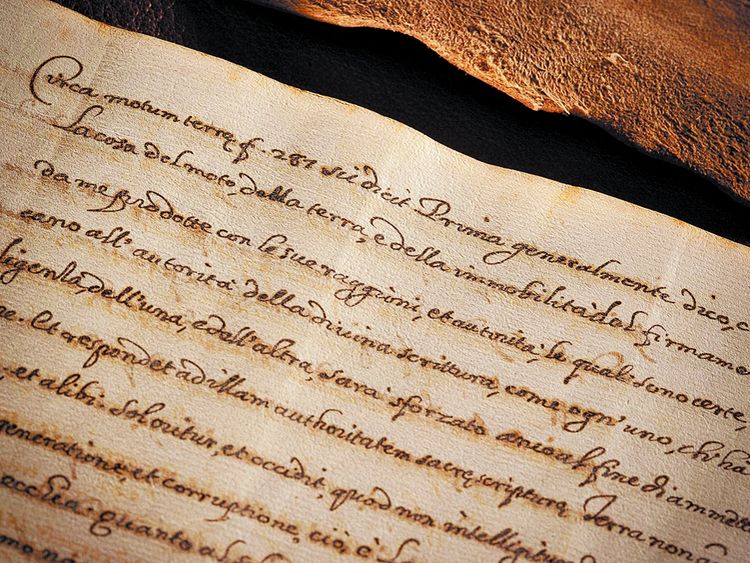 Circa motum terrę f. 287 sic dicit Prima generalmente dico, c
La cosa del moto della terra, e della immobilità del firmame
da me prodotte con le sue raggioni, et autorità, le quali sono certe,
cano all'autorità della divina scrittura, come ogn'uno, chi ha
ligenza dell'una, e dell'altra, sarà sforzato anco al fine di ammett
ne. Et respondet ad illam authoritatem sacrę scripturę Terra non
, et alibi. Sol oritur, et occidit, quod non intelligitur
generatione, et corruptione, ciò, è
ecclia. quanto al
mo